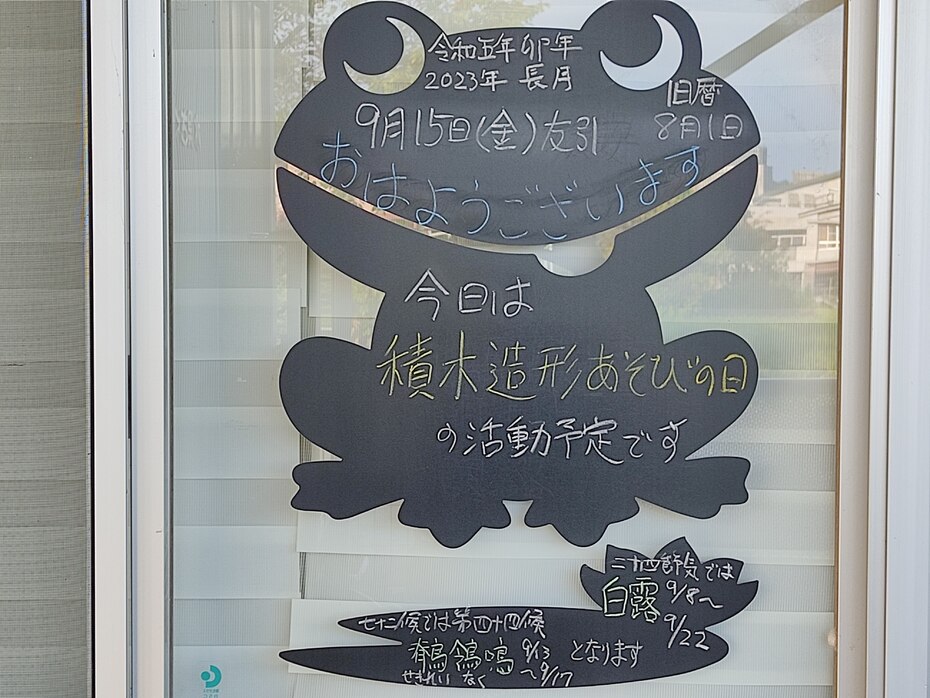 令和五年 卯年
2023年 長月
旧暦
8月1日
9月15日(金)友引
おはようございます
今日は
積木造形あそびの日
の活動予定です
二十四節気では
白露 9/8〜
9/22
七十二候では第四十四候
鶺鴒鳴 9/13 となります
せきれい なく 〜9/17